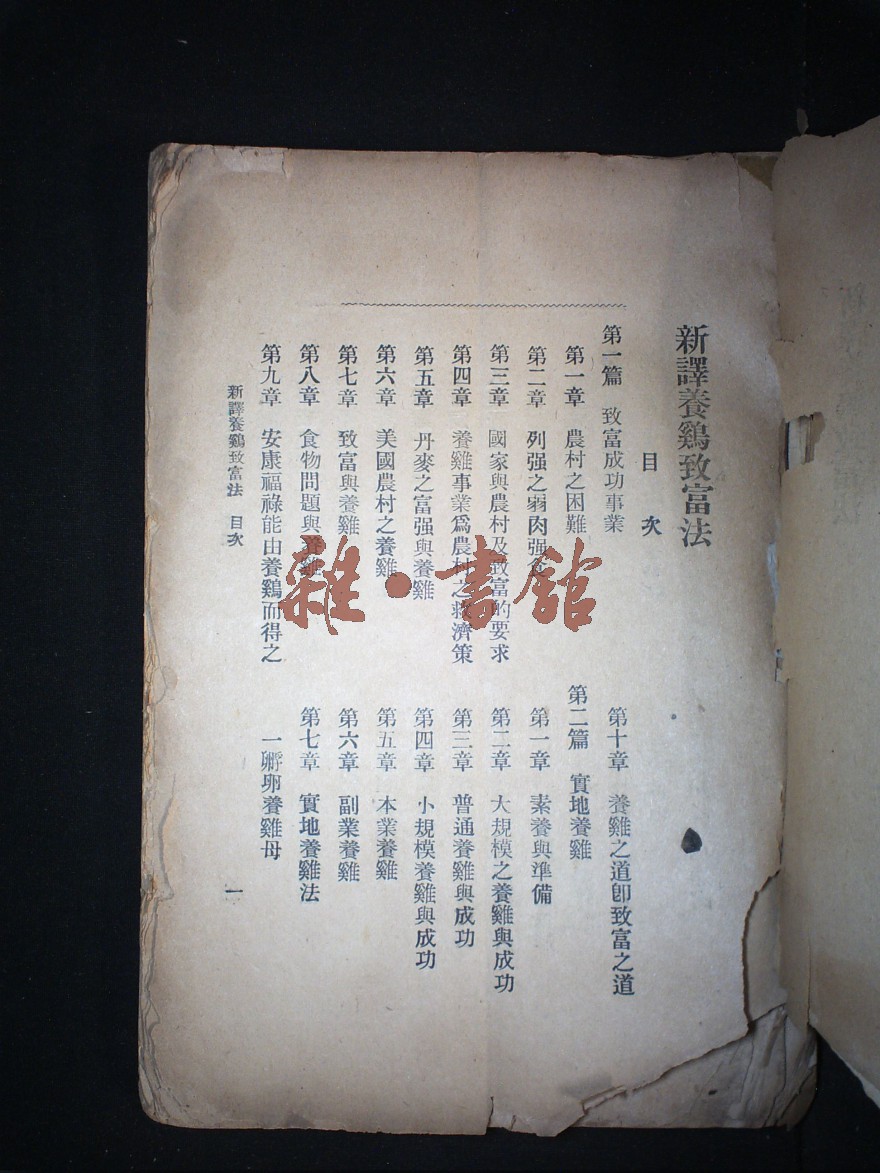 新譯養鷄致富法
目次
第一篇 致富成功事業
第一章 農村之困難
第二章 列强之弱肉强食
第三章 國家與農村及致富的要求
第四章 養雞事業爲農村之救濟策
第五章 丹麥之富强與養雞
第六章 美國農村之養雞
第七章 致富與養雞
第八章 食物問題與養雞
第九章 安康福祿能由養鷄而得之
第十章 養雞之道卽致富之道
第二篇 實地養雞
第一章 素養與準備
第二章 大規模之養雞與成功
第三章 普通養雞與成功
第四章 小規模養雞與成功
第五章 本業養雞
第六章 副業養雞
第七章 實地養雞法
一 孵卵養雞母
新譯養鷄致富法 目次
一
雜·書館